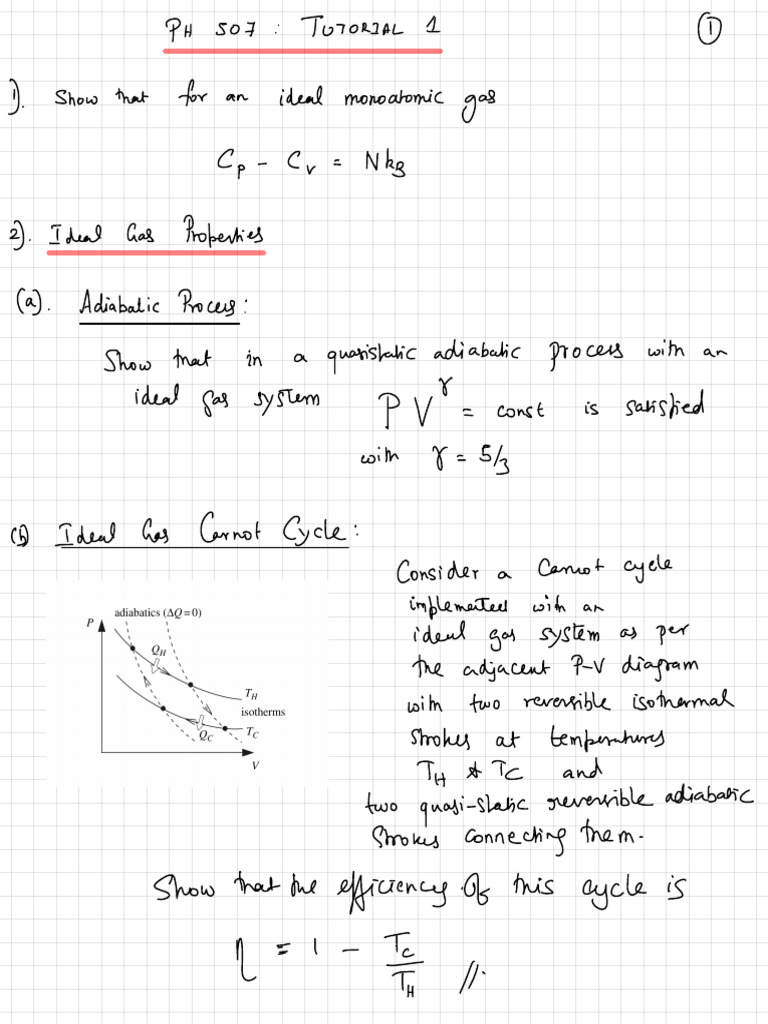 PH 507 : TUTORIAL 1
①
1). Show that for an ideal monoatomic gas
Cp - Cv = NkB
2). Ideal Gas Properties
(a). Adiabatic Process:
Show that in a quasistatic adiabatic process with an
ideal gas system PV^γ = const is satisfied
with γ = 5/3
(b) Ideal Gas Carnot Cycle:
Consider a Carnot cycle
implemented with an
ideal gas system as per
the adjacent P-V diagram
with two reversible isothermal
strokes at temperatures
TH & TC and
two quasi-static reversible adiabatic
strokes connecting them.
adiabatics (ΔQ=0)
P
QH
TH
isotherms
QC
TC
V
Show that the efficiency of this cycle is
η = 1 - TC/TH //.